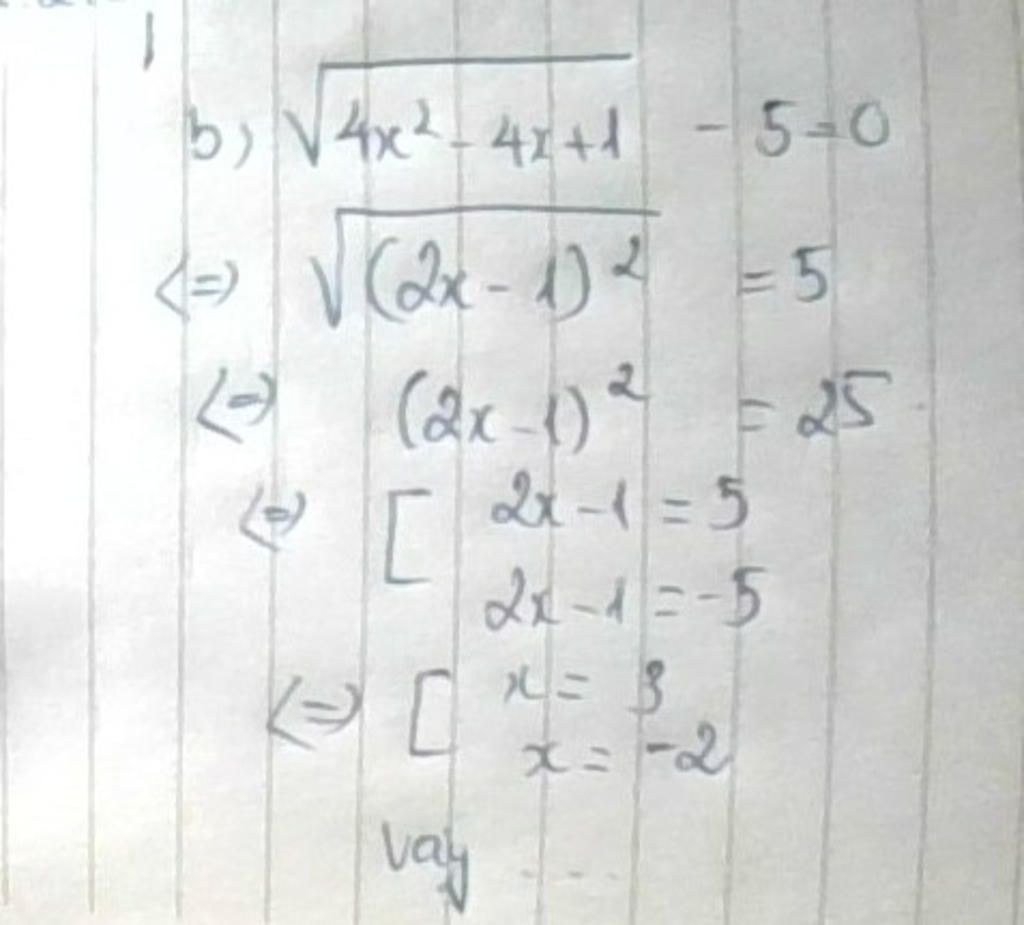 b) √4x² - 4x + 1 - 5 = 0
<=> √(2x - 1)² = 5
<=> (2x - 1)² = 25
<=> [ 2x - 1 = 5
2x - 1 = -5
<=> [ x = 3
x = -2
vay ....